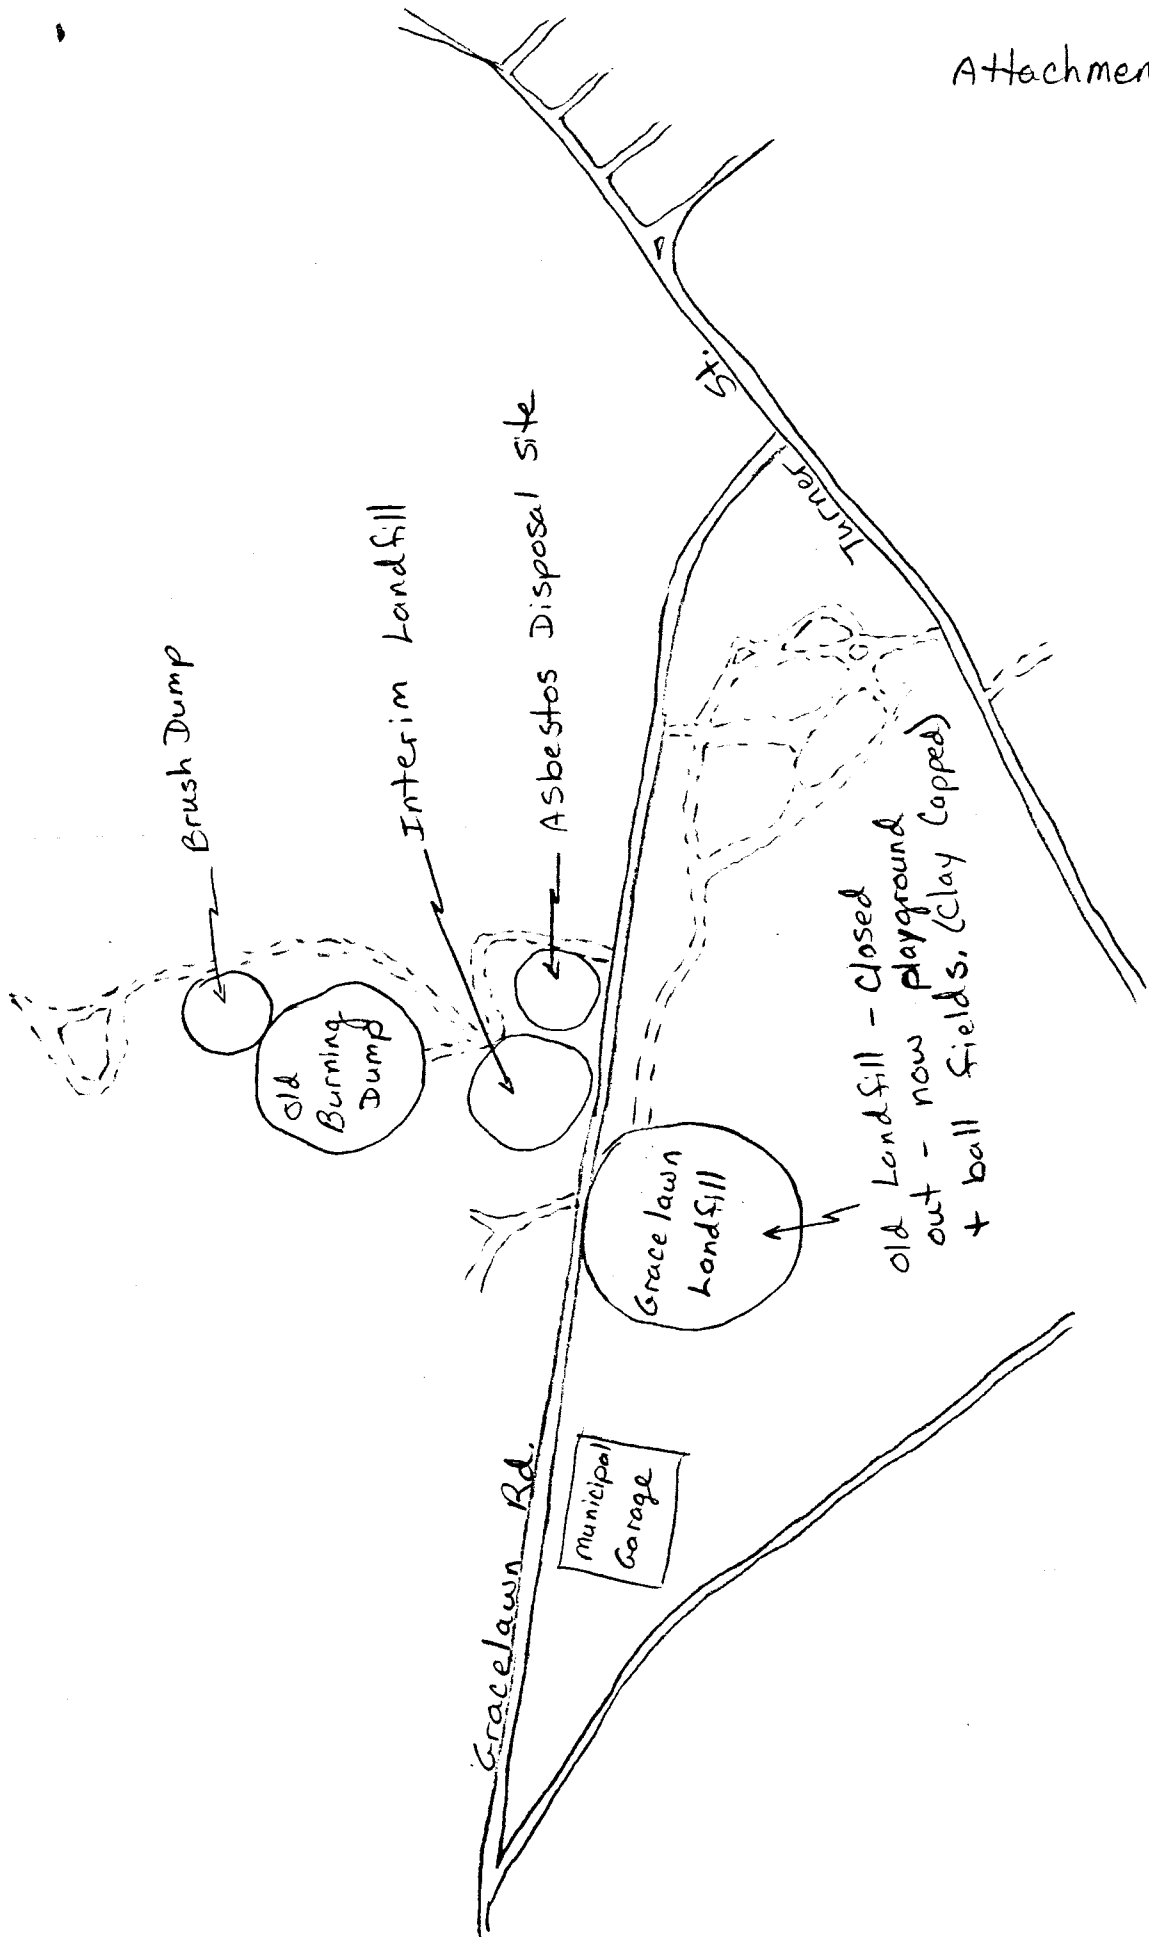 Brush Dump
Interim Landfill
Asbestos Disposal Site
Old
Burning
Dump
St.
Turner
Gracelawn
Landfill
Old Landfill - Closed
out - now playground
+ ball fields. (Clay Capped)
Gracelawn Rd.
Municipal
Garage